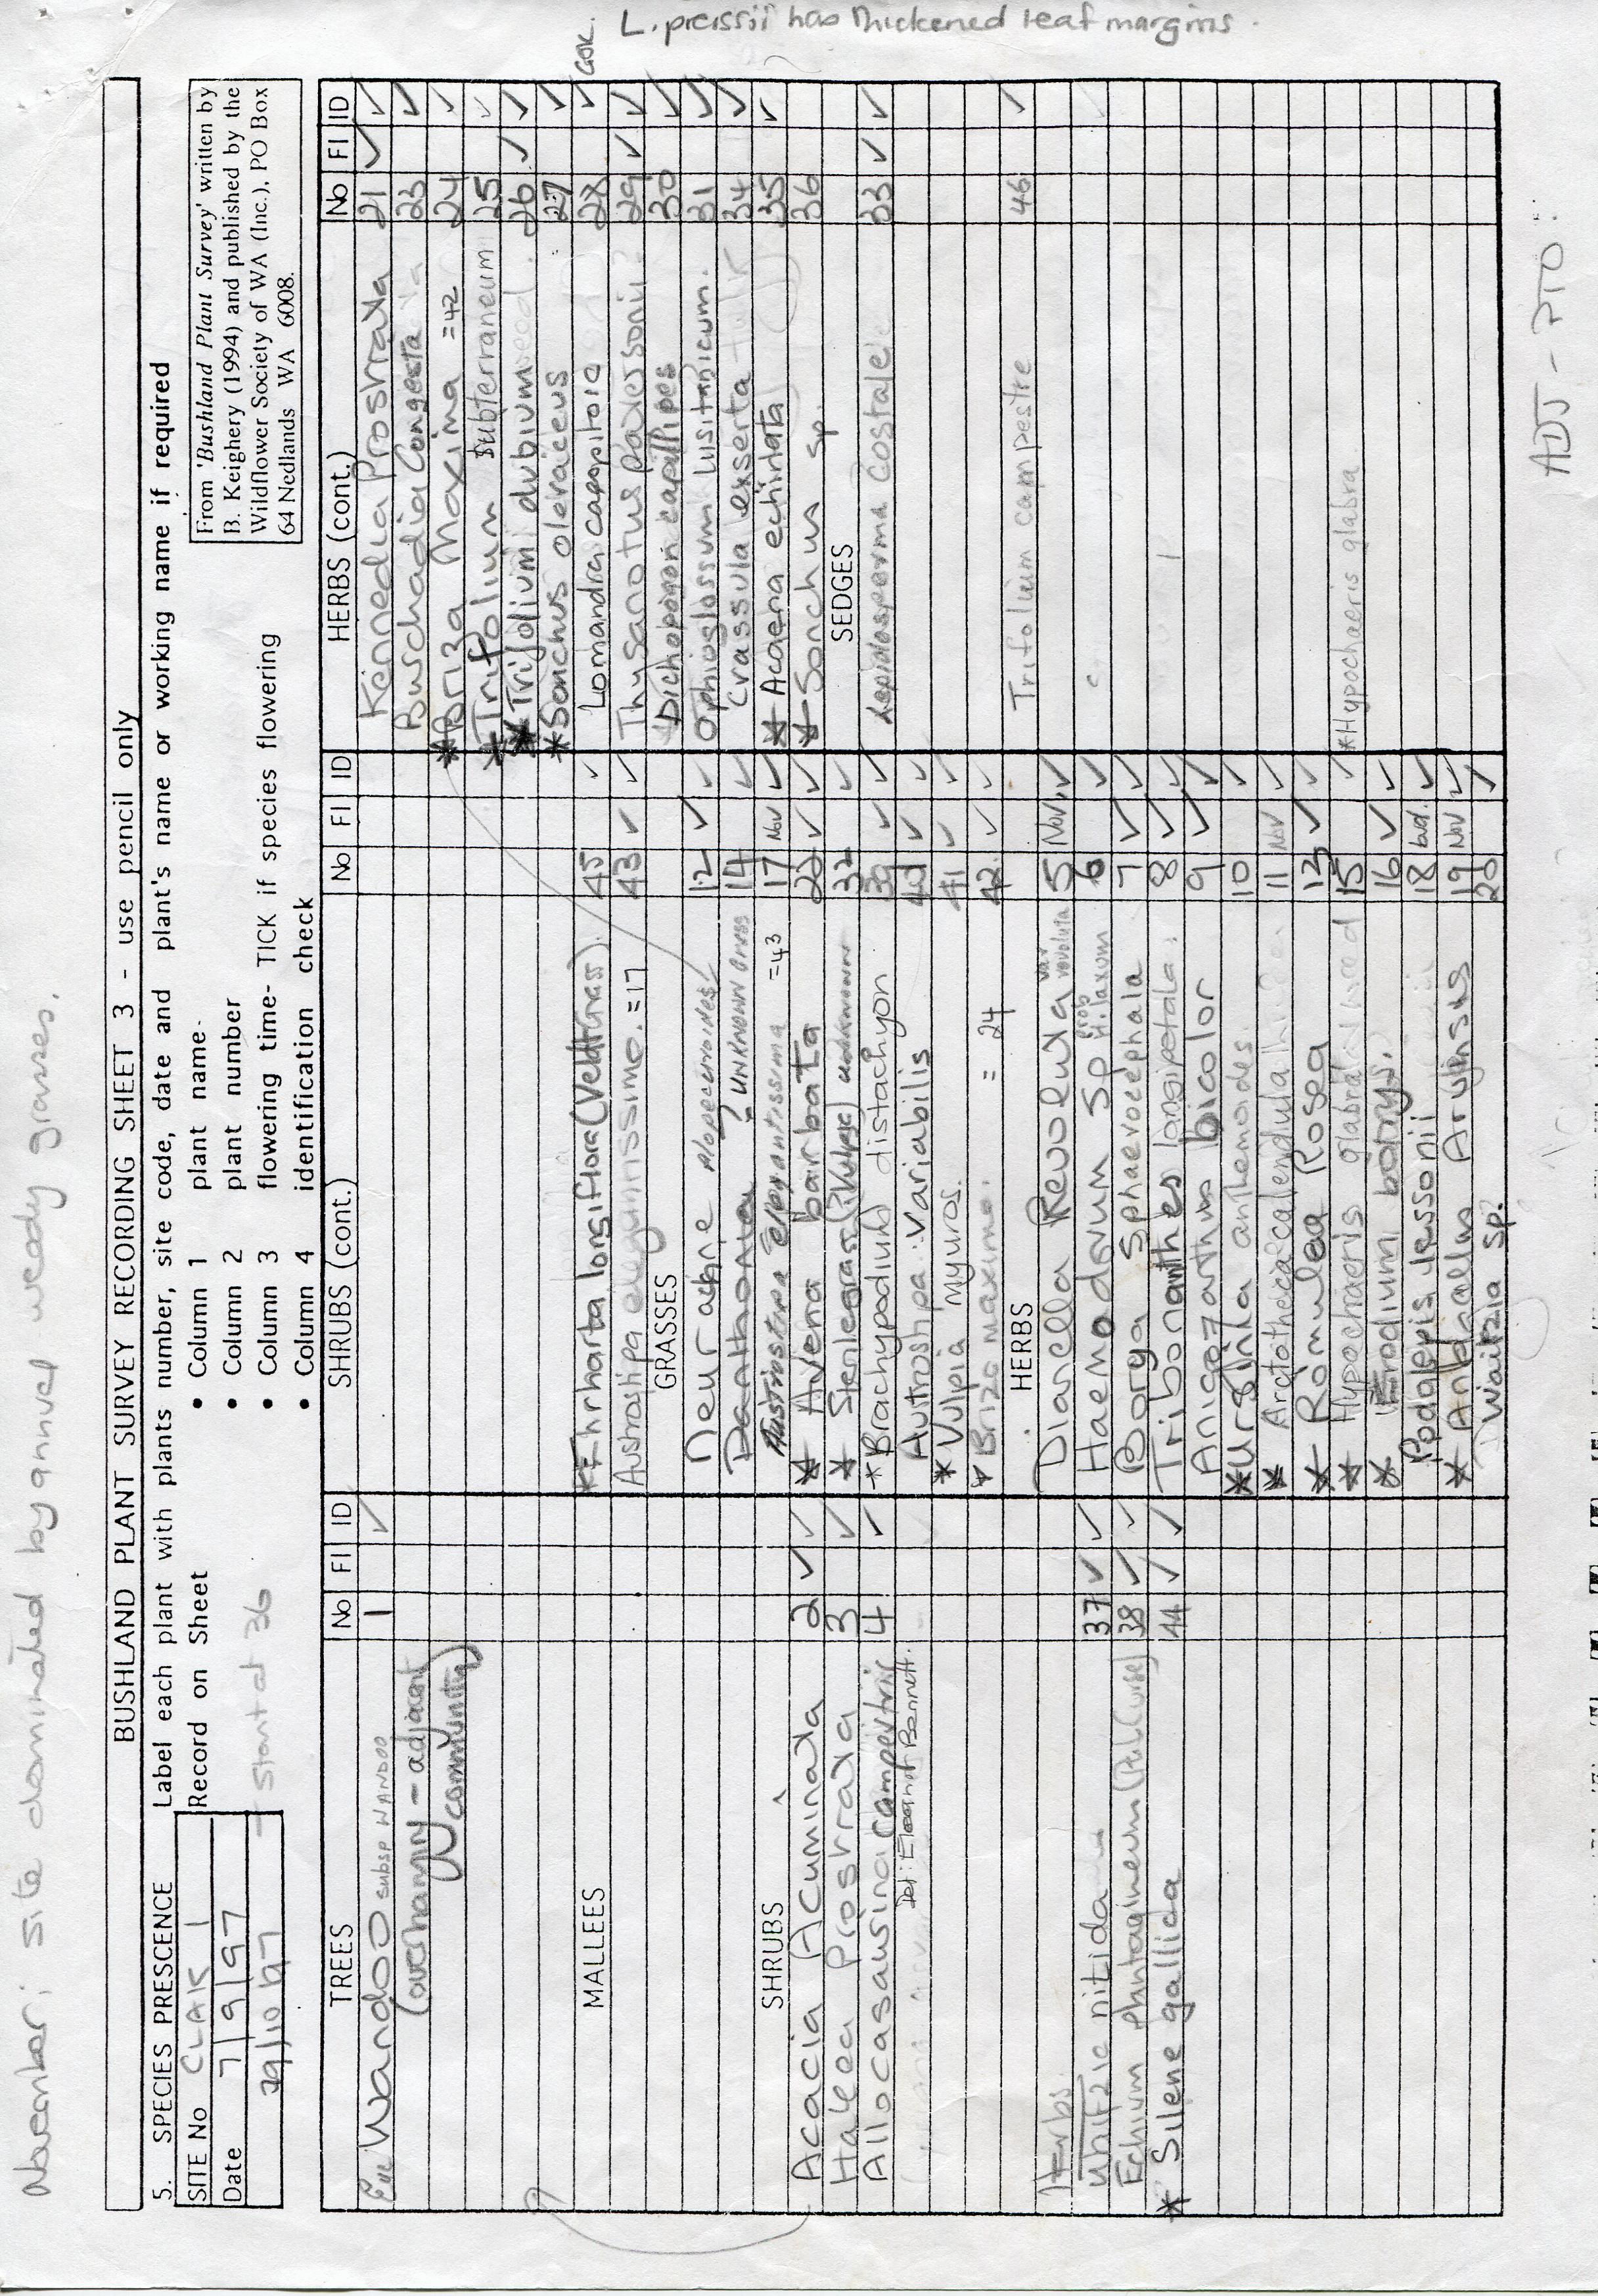 November; site dominated by annual weedy grasses.
BUSHLAND PLANT SURVEY RECORDING SHEET 3 - use pencil only
5. SPECIES PRESCENCE
Label each plant with plants number, site code, date and plant's name or working name if required
SITE No CLA15 1
Date 7/9/97
29/10/97
Record on Sheet
• Column 1 plant name
• Column 2 plant number
• Column 3 flowering time- TICK if species flowering
• Column 4 identification check
Start at 36
From 'Bushland Plant Survey' written by
B. Keighery (1994) and published by the
Wildflower Society of WA (Inc.), PO Box
64 Nedlands WA 6008.
TREES No Fl ID
Euc Wandoo subsp WANDOO 1 ✓
(overhanging - adjacent
community)
MALLEES
SHRUBS
Acacia Acuminata 2 ✓ ✓
Hakea Prostrata 3 ✓
Allocasaurina campestris 4 ✓
Det: Eleanor Bennett.
Herbs.
nitida 37 ✓ ✓
Echium plantagineum (Pat. Curse) 38 ✓ ✓
* Silene gallida 44 ✓ ✓
SHRUBS (cont.) No Fl ID
* Ehrharta longiflora (Veldt Grass). 45 ✓
Austrostipa elegantissima. = 17 43 ✓ ✓
GRASSES
Neurachne Alopecuroides 12 ✓ ✓
Danthonia ? UNKNOWN Grass 14 ✓
Austrostipa elegantissima = 43 17 Nov ✓
* Avena barbata 22 ✓ ✓
* Sterilegrass (?Vulpia) unknown 32 ✓
* Brachypodium distachyon 39 ✓ ✓
Autroshpa variabilis 40 ✓ ✓
* Vulpia myuros. 41 ✓ ✓
* Briza maxima. = 24 42 ✓ ✓
HERBS
Dianella Revoluta var revoluta 5 Nov ✓
Haemodorum Sp prob H. laxum 6 ✓
Borya Sphaerocephala 7 ✓ ✓
Tribonanthes longipetala. 8 ✓ ✓
Anigozanthus bicolor 9 ✓ ✓
* Ursinia anthemoides 10 ✓
* Arctotheca calendula 11 Nov ✓
* Romulea Rosea 13 ✓ ✓
* Hypochaeris glabra 15 ✓
* Erodium botrys. 16 ✓ ✓
Podolepis lessonii 18 bud. ✓
* Anagallis Arvensis 19 Nov ✓
Waitzia sp. 20 ✓
HERBS (cont.) No Fl ID
Kennedia Prostrata 21 ✓ ✓
Burchadia Congesta 23 ✓
* Briza Maxima = 42 24 ✓
* Trifolium subterraneum 25 ✓
* Trifolium dubium 26 ✓ ✓
* Sonchus oleraceus 27 ✓
Lomandra 28 ✓ GJK.
Thysanotus Patersonii 29 ✓ ✓
Dichopogon capillipes 30 ✓
Ophioglossum lusitanicum. 31 ✓
Crassula exserta 34 ✓
* Acaena echinata 35 ✓
* Sonchus sp. 36
SEDGES
Lepidosperma costale 33 ✓ ✓
Trifolium campestre 46 ✓
* Hypochaeris glabra.
L. preissii has thickened leaf margins.
ADJ - PTO: